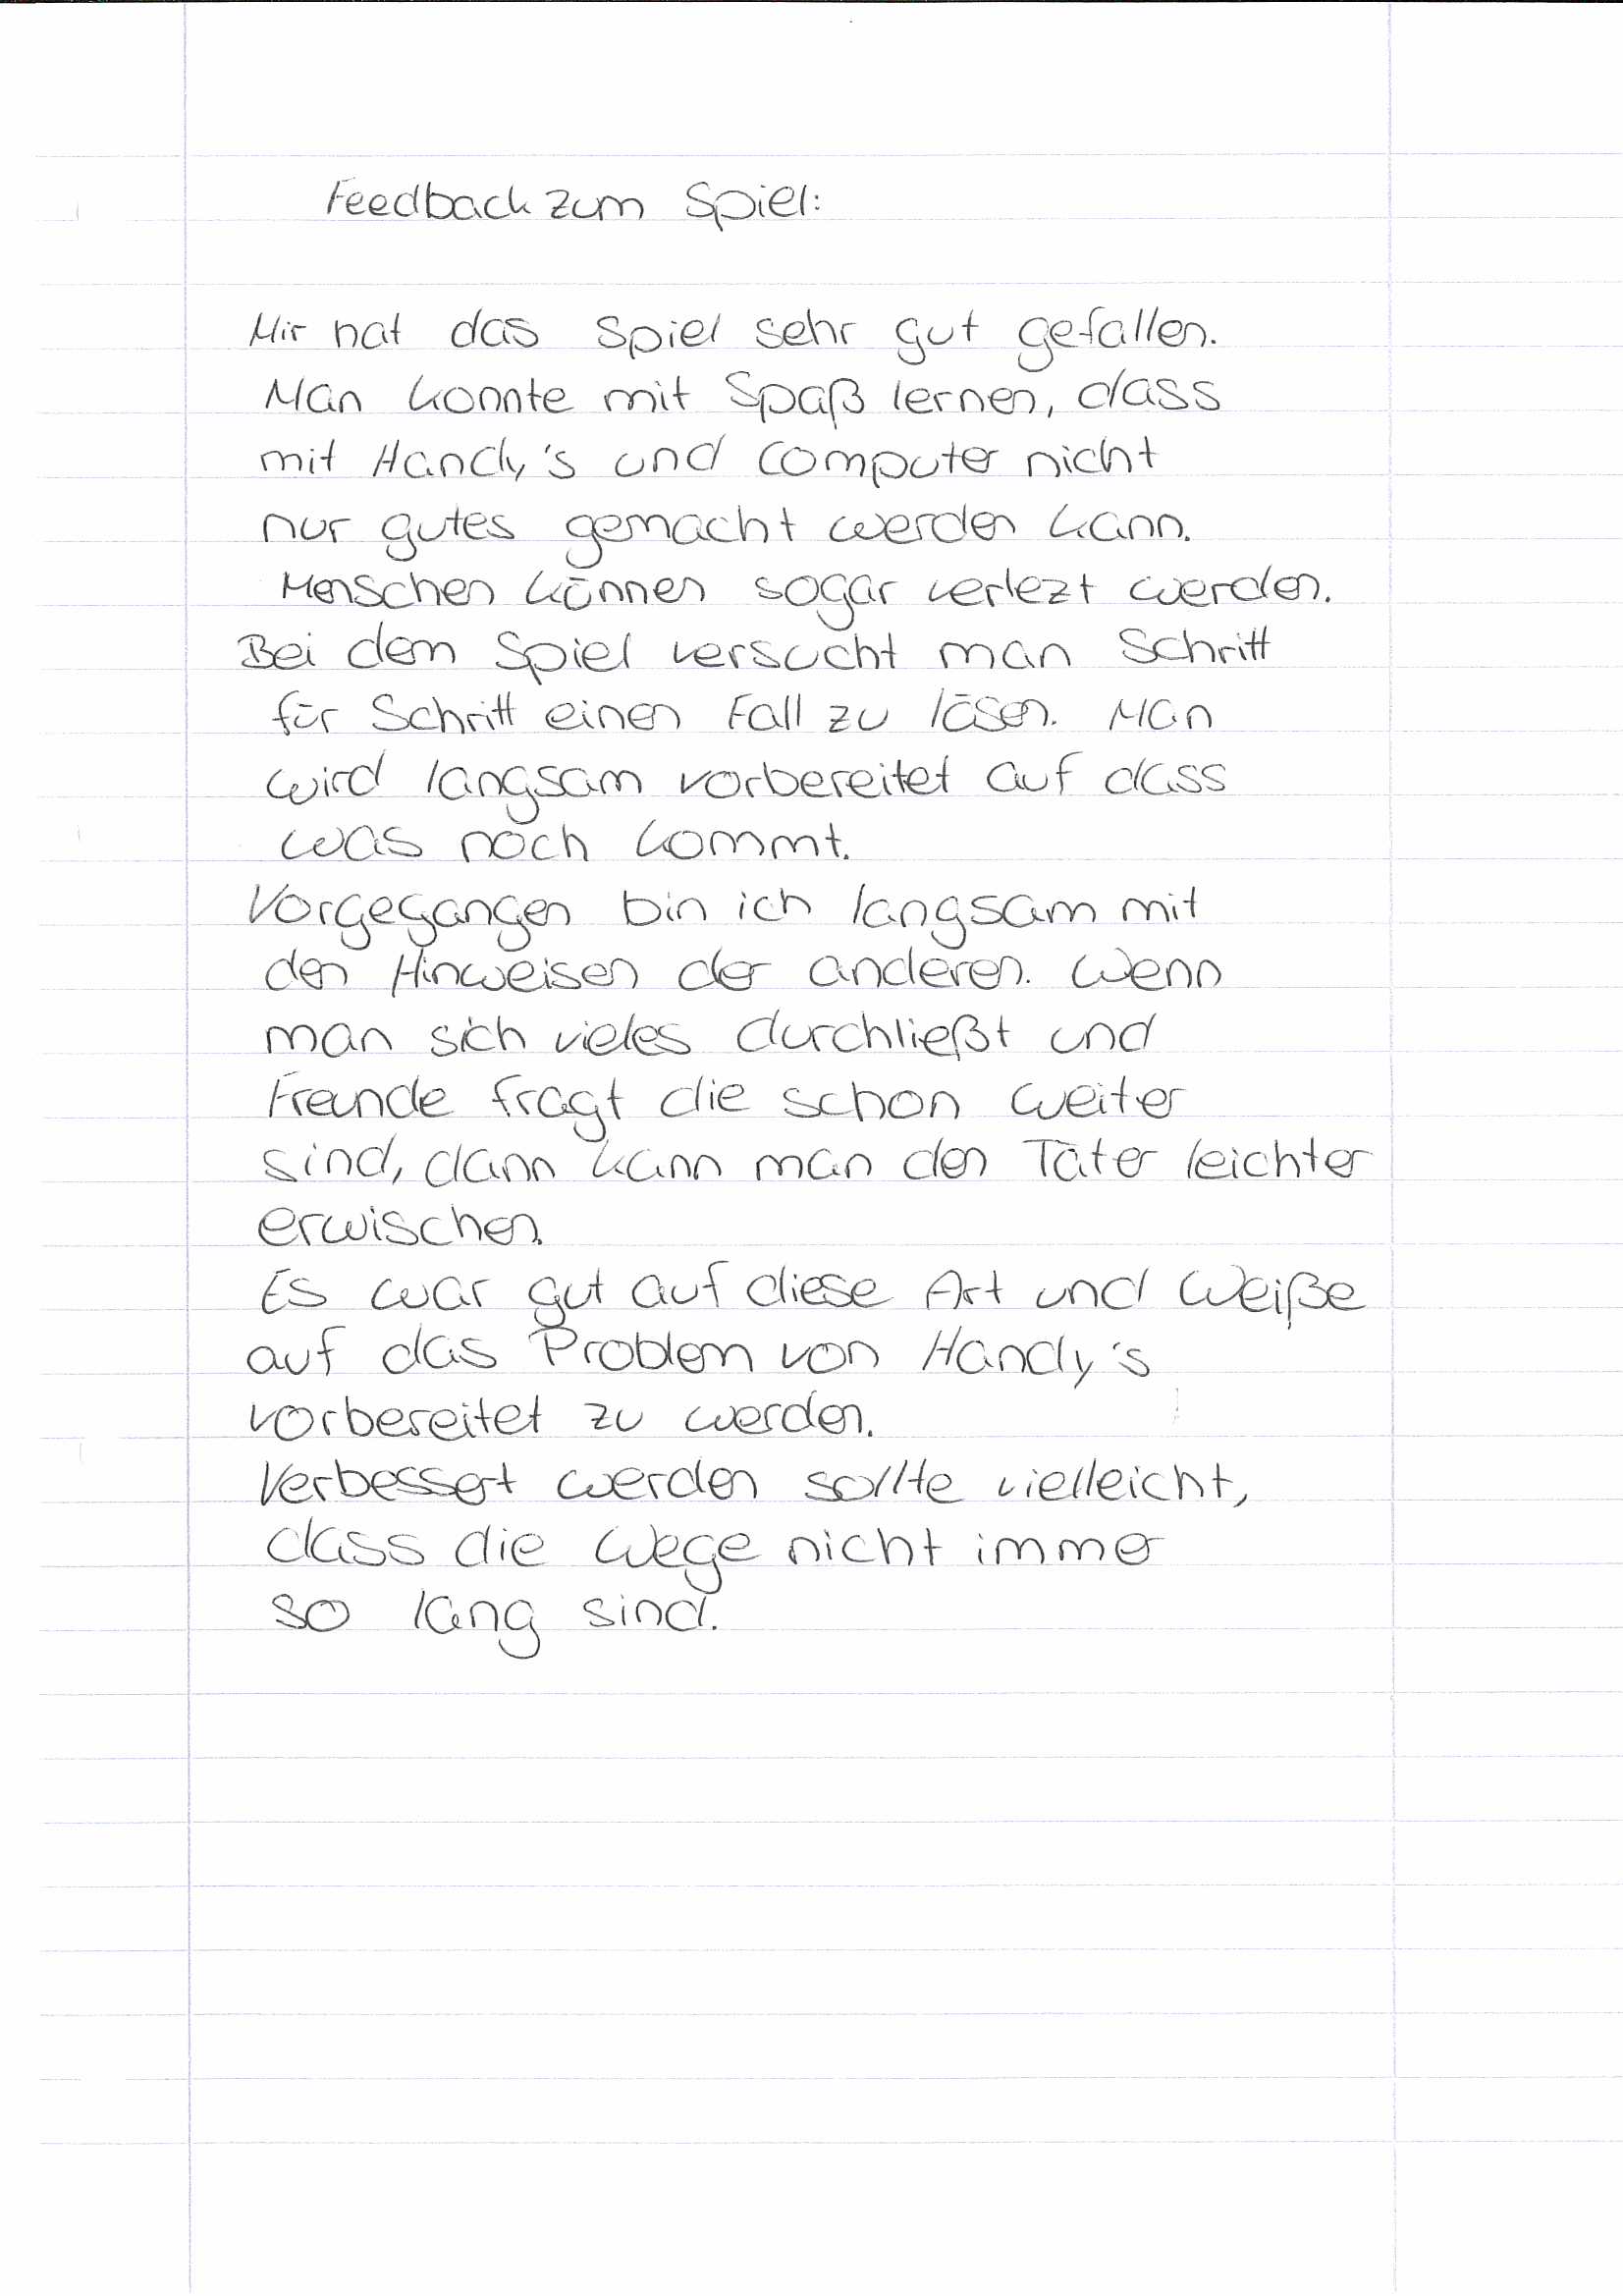 Feedback zum Spiel:
Mir hat das Spiel sehr gut gefallen.
Man konnte mit Spaß lernen, dass
mit Handy's und Computer nicht
nur gutes gemacht werden kann.
Menschen können sogar verlezt werden.
Bei dem Spiel versucht man Schritt
für Schritt einen Fall zu läsen. Man
wird langsam vorbereitet auf dass
was noch kommt.
Vorgegangen bin ich langsam mit
den Hinweisen der anderen. Wenn
man sich vieles durchließt und
Freunde fragt die schon weiter
sind, dann kann man den Täter leichter
erwischen.
Es war gut auf diese Art und Weiße
auf das Problem von Handy's
vorbereitet zu werden.
Verbessert werden sollte vielleicht,
dass die Wege nicht immer
so lang sind.